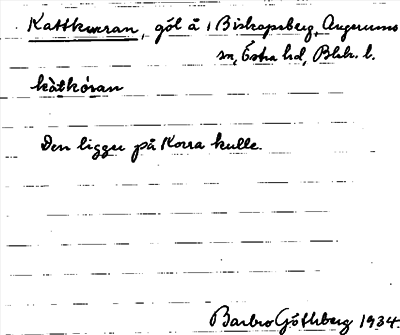 Kattkurran, göl å 1 Biskopsberg, Augerums
sn, Östra hd, Blek. l.
kàtkóran
Den ligger på Korra kulle.
Barbro Göthberg 1934.